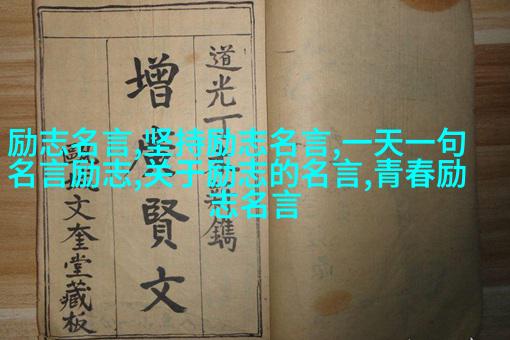 励志名言,坚持励志名言,一天一句
名言励志,关于励志的名言,青春励
志名言
道光丁
新鐫
增廣賢文
文奎堂藏板